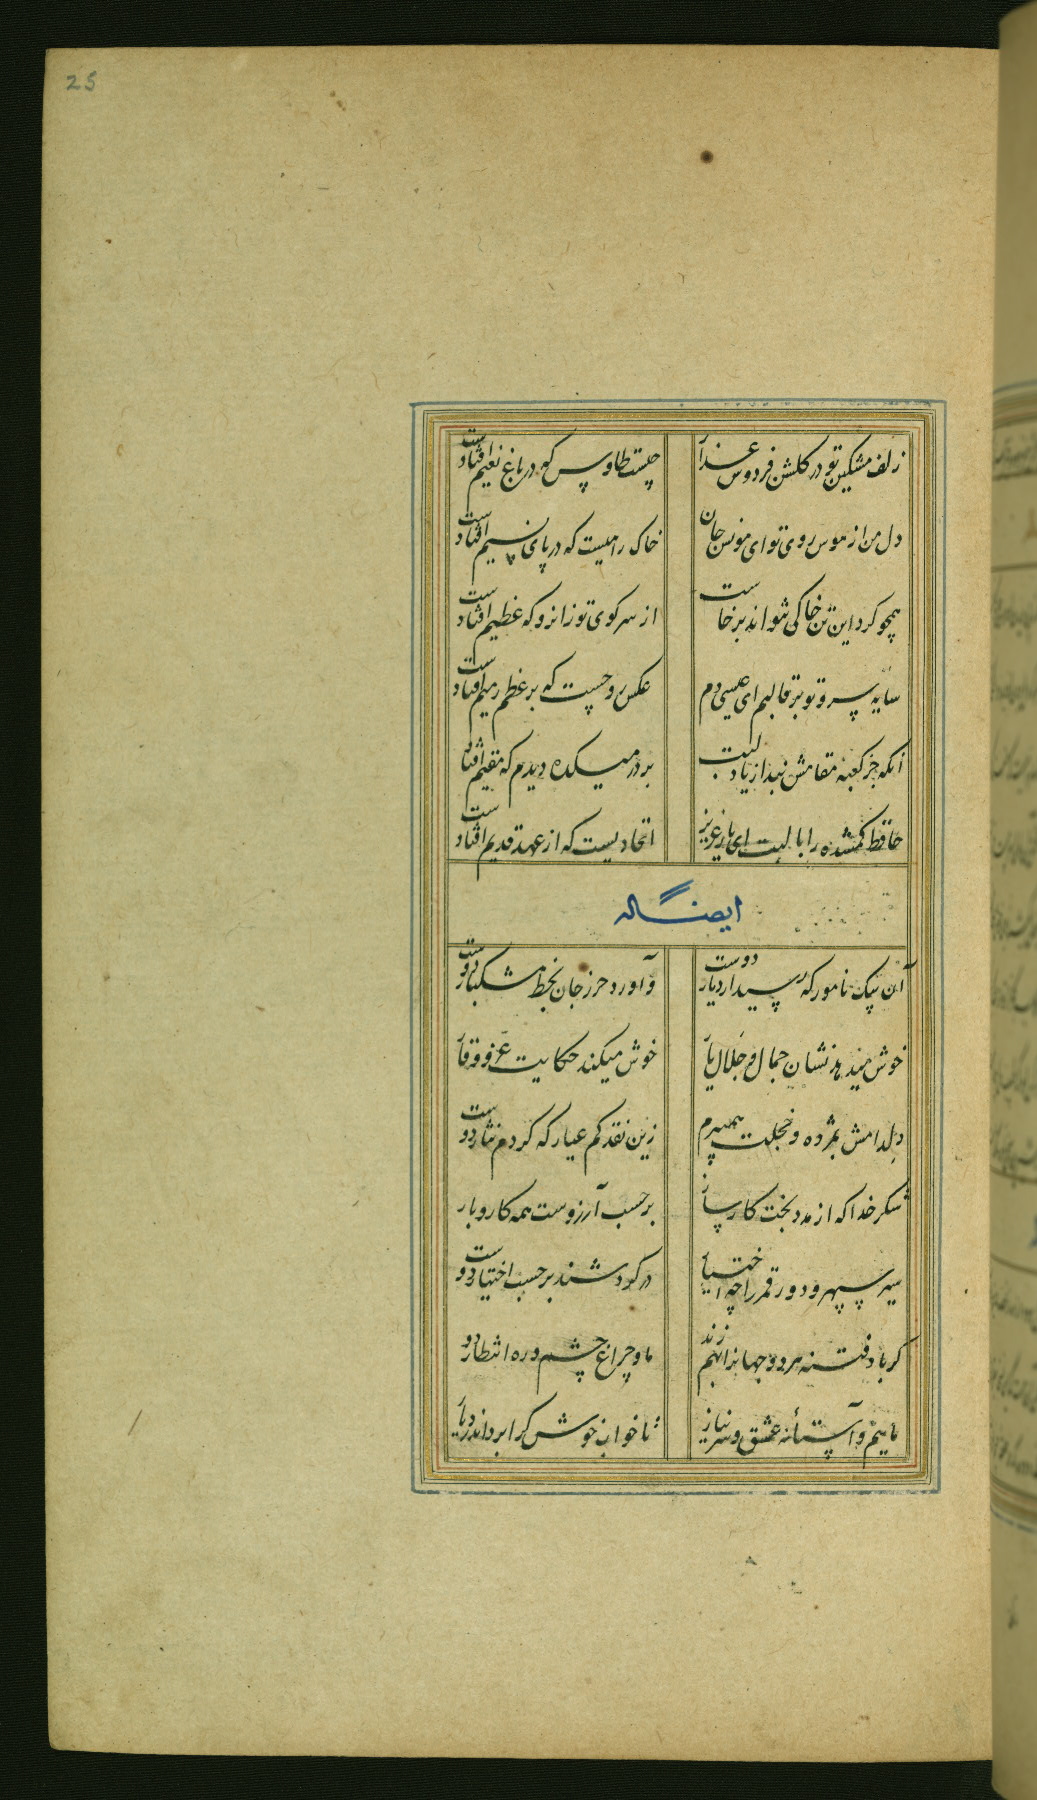 25
زلف مشکین تو در کلشن فردوس عذار
چیست طاوس که در باغ نعیم افتادست
دل من از هوس روی تو ای مونس جان
خاک راهیست که در پای نسیم افتادست
همچو کرد این تن خاکی نتواند برخاست
از سر کوی تو زانرو که عظیم افتادست
سایه سرو تو بر قالبم ای عیسی دم
عکس روحیست که بر عظم رمیم افتادست
آنکه جز کعبه مقامش نبد از یاد لبت
بر در میکده دیدم که مقیم افتاد
حافظ کمشده را با لبت ای یار عزیز
اتحادیست که از عهد قدیم افتادست
ایضاله
آن پیک نامور که رسید از دیار دوست
وآورد حرز جان بخط مشکبار دوست
خوش میدهد نشان جمال و جلال یار
خوش میکند حکایت عز و وقار
دلدامش بمژده و خجلت همیبرم
زین نقد کم عیار که کردم نثار دوست
شکر خدا که از مدد بخت کارساز
برحسب آرزوست همه کاروبار
سیر سپهر و دور قمر را چه اختیار
در کردشند برحسب اختیار دوست
کر باد فتنه هر دو جهانرا بهم زند
ما و چراغ چشم و ره انتظار دو
مائیم و آستانه عشق و سر نیاز
تا خواب خوش کرا برد اندر دیار